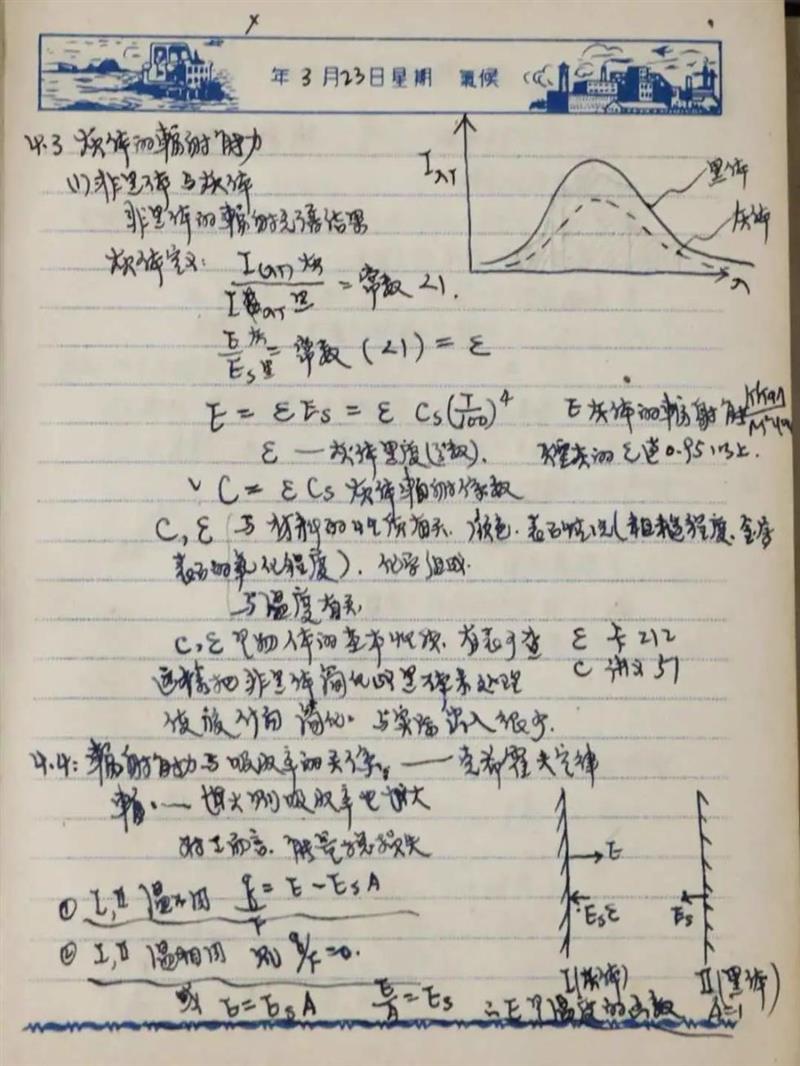 年3月23日星期 氣候
4.3 灰体的辐射能力
(1) 非黑体与灰体
非黑体的辐射光谱结果
灰体定义: I(λT)灰 / I λT 黑 = 常数 <1.
E灰 / Es黑 = 常数 (<1) = ε
I λT
黑体
灰体
λ
E = ε Es = ε Cs (T/100)^4 E 灰体的辐射能
ε — 灰体黑度(系数). ε达0.95以上.
∵ C = ε Cs 灰体辐射系数
C, ε 与材料的性质有关. 颜色. 表面情况(粗糙程度.金属
表面的氧化程度). 化学组成.
与温度有关
C, ε 是物体的基本性质. 有表可查 ε 212
C 讲义 51
这样把非黑体简化成黑体来处理
简化. 与实际出入很少.
4.4: 辐射能力与吸收率的关系. —— 克希霍夫定律
辐 — 增大则吸收率也增大
对工而言. 能量损失
① I, II 温不同 q/F = E - Es A
② I, II 温相同 则 q/F = 0.
或 E = Es A E/A = Es ∴ E 是温度的函数
E
Es ε
Es
I (灰体)
II (黑体)
A=1